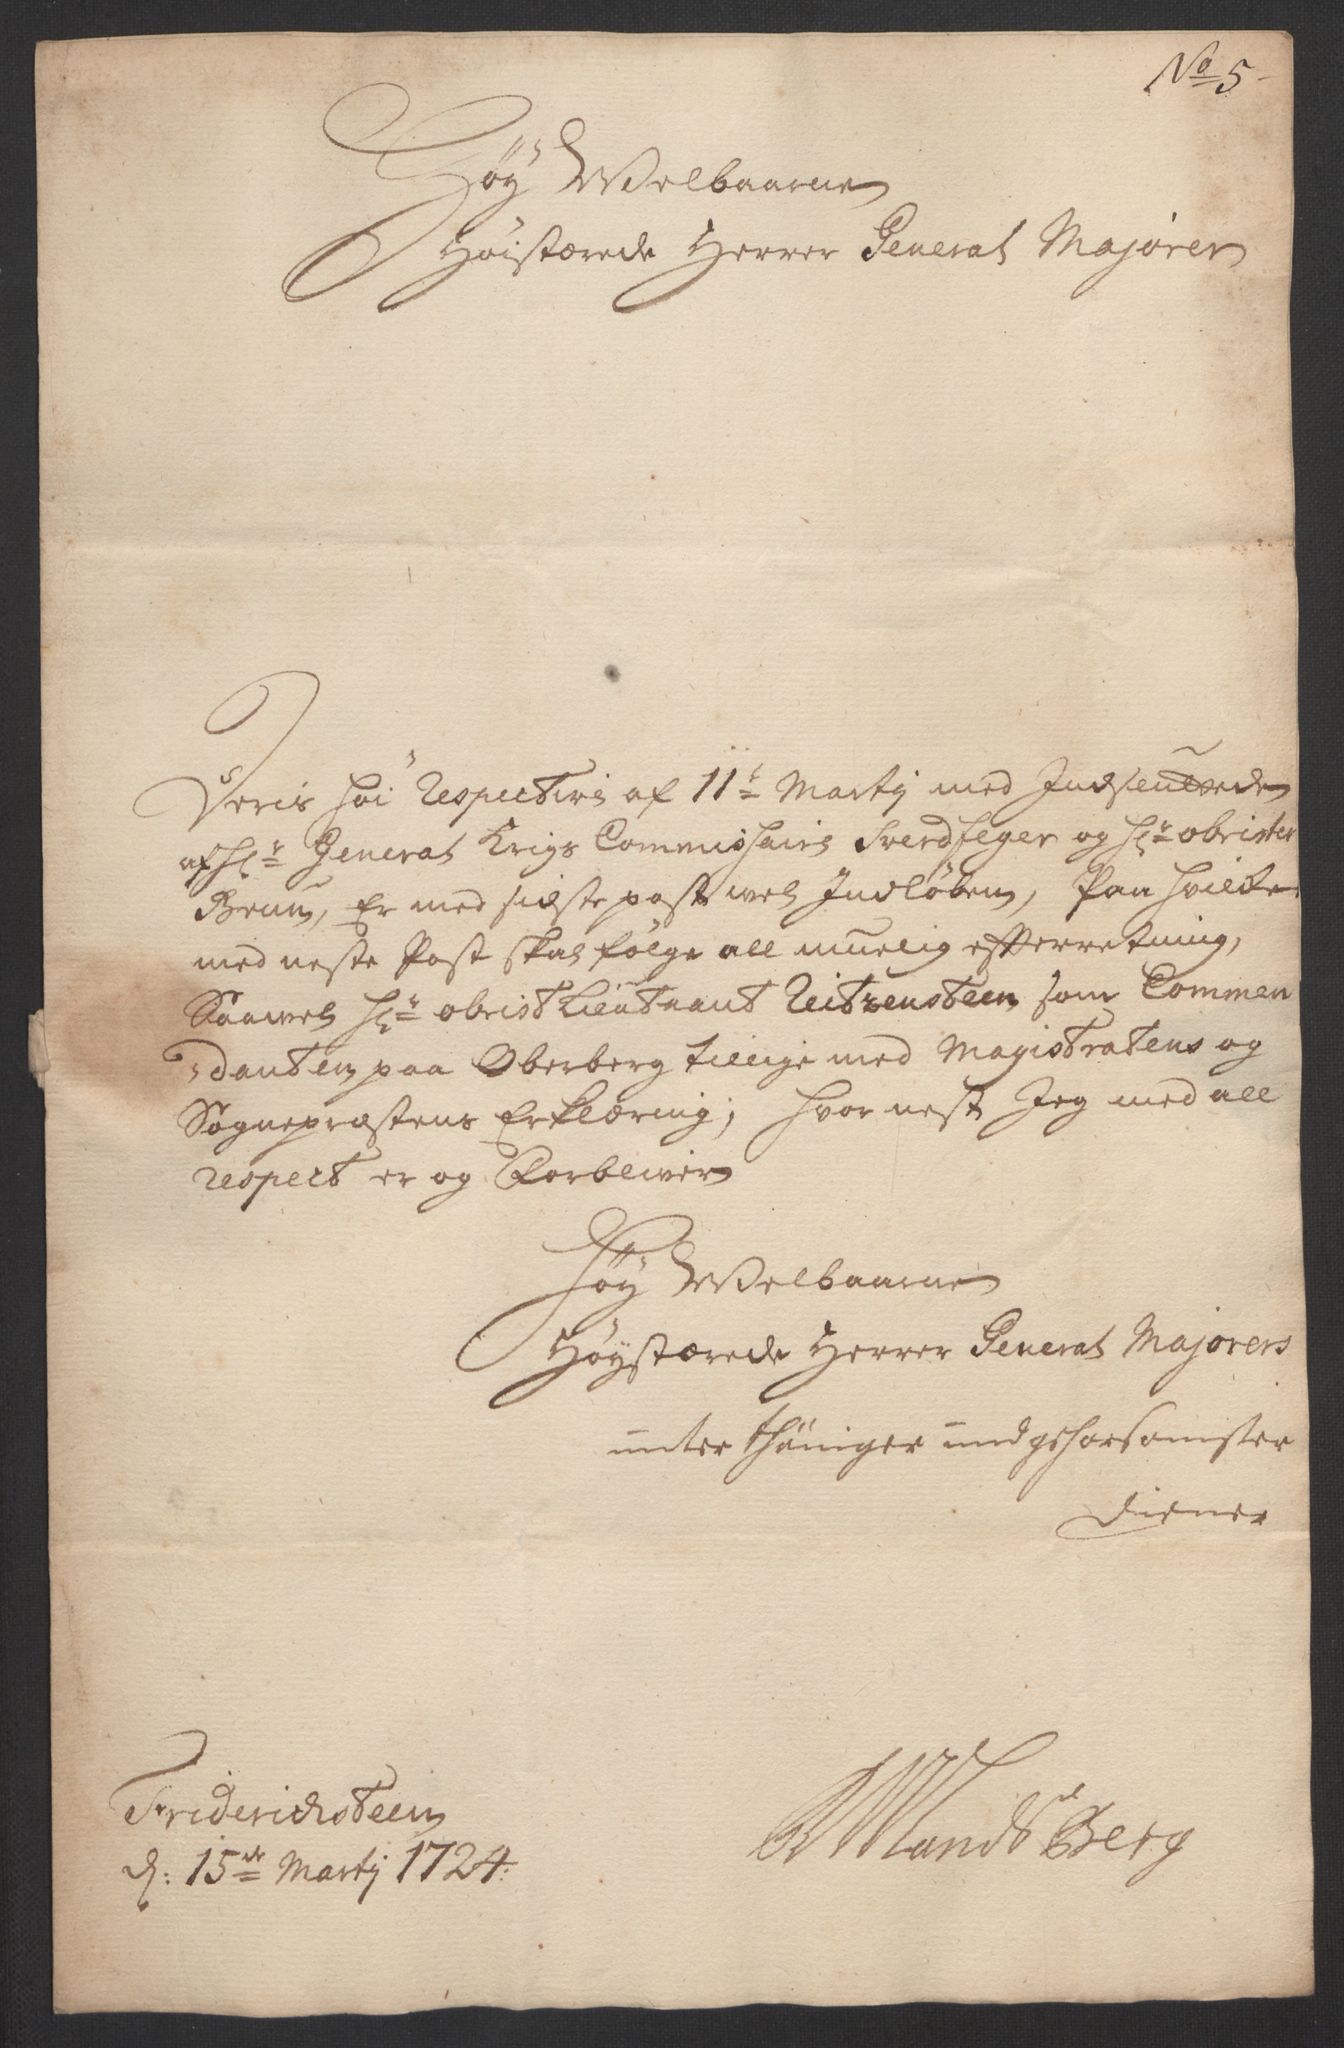 No 5
Høy Welbaarne
Høistærede Herrer General Majorer
Deris høi Respective af 11te Martij med Indsendede
af Hr General Krigs Commissaire Sverdfeger og Hr obrister
Bruun, Er med sidste post vel Indløben, Paa hvilke
med neste Post skal følge all muelig efterretning,
Saavel Hr obrist Lieutnant Reitzensteen som Commen
danten paa Oberberg tillige med Magistratens og
Sognepræstens Erklæring; hvor nest Jeg med all
respect er og forblever
Høy Welbaarne
Høystærede Herrer General Majorers
unterthäniger und gehorsamster
diener
Friderichsteen
d: 15de Martij 1724:
Landsberg